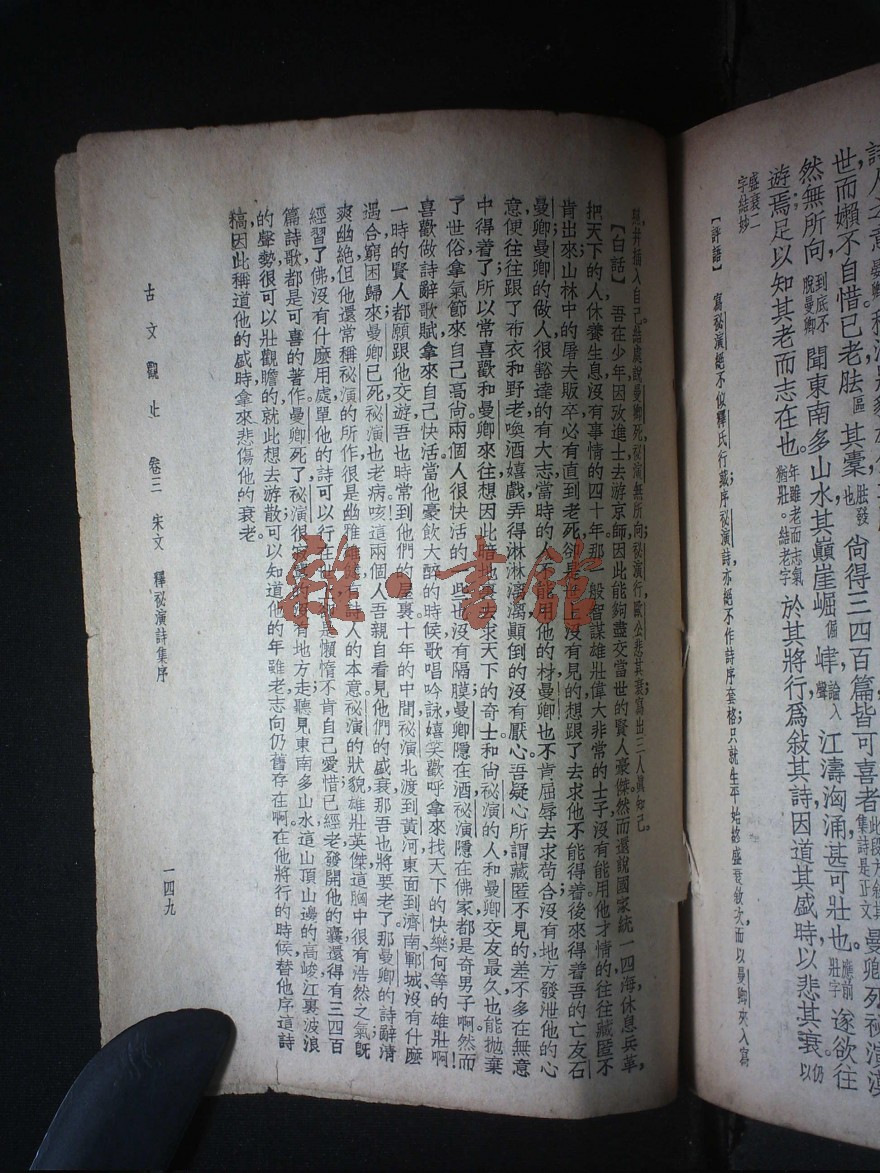 詩人之意
世而嬾不自惜已老胠區其橐胠發也尚得三四百篇皆可喜者
然無所向到底不脫曼卿聞東南多山水其巔崖崛倔峍論入聲江濤洶涌甚可壯也應前壯字遂欲往
遊焉足以知其老而志在也年雖老而志氣猶壯。結老字於其將行爲敍其詩因道其盛時以悲其衰仍以
盛衰二字結妙
【評語】寫祕演絕不似釋氏行藏序祕演詩亦絕不作詩序套格只就生平始終盛衰敘次而以曼卿夾入寫
照并插入自己。結處說曼卿死祕演無所向祕演行歐公悲其衰寫出三人眞知己。
【白話】吾在少年因攷進士去游京師因此能夠盡交當世的賢人豪傑然而還說國家統一四海休息兵革,
把天下的人休養生息沒有事情的四十年那一般智謀雄壯偉大非常的士子沒有能用他才情的往往藏匿不
肯出來山林中的屠夫販卒必有直到老死沒有見的想跟了去求他不能得着後來得着吾的亡友石
曼卿曼卿的做人很豁達的有大志當時的人不能用他的材曼卿也不肯屈辱去求苟合沒有地方發泄他的心
意便往往跟了布衣和野老喚酒嬉戲弄得淋淋漓漓顛倒的沒有厭心吾疑心所謂藏匿不見的差不多在無意
中得着了所以常喜歡和曼卿來往想因此暗地裏去求天下的奇士和尙祕演的人和曼卿交友最久也能拋棄
了世俗拿氣節來自己高尙兩個人很快活的一些也沒有隔膜曼卿隱在酒祕演隱在佛家都是奇男子啊然而
喜歡做詩辭歌賦拿來自己快活當他豪飲大醉的時候歌唱吟詠嬉笑歡呼拿來找天下的快樂何等的雄壯啊!
一時的賢人都願跟他交遊吾也時常到他們的屋裏十年的中間祕演北渡到黃河東面到濟南鄆城沒有什麼
遇合窮困歸來曼卿已死祕演也老病咳這兩個人吾親自看見他們的盛衰那吾也將要老了那曼卿的詩辭清
爽幽絕但他還常稱祕演的所作很是幽雅詩人的本意祕演的狀貌雄壯英傑這胸中很有浩然之氣旣
經習了佛沒有什麼用處單他的詩可以行在懶惰不肯自己愛惜已經老發開他的囊還得有三四百
篇詩歌都是可喜的著作曼卿死了祕演很寂沒有地方走聽見東南多山水這山頂山邊的高峻江裏波浪
的聲勢很可以壯觀瞻的就此想去游散可以知道他的年雖老志向仍舊存在啊在他將行的時候替他序這詩
稿因此稱道他的盛時拿來悲傷他的衰老。
古文觀止 卷三 宋文 釋祕演詩集序
一四九
雜·書館